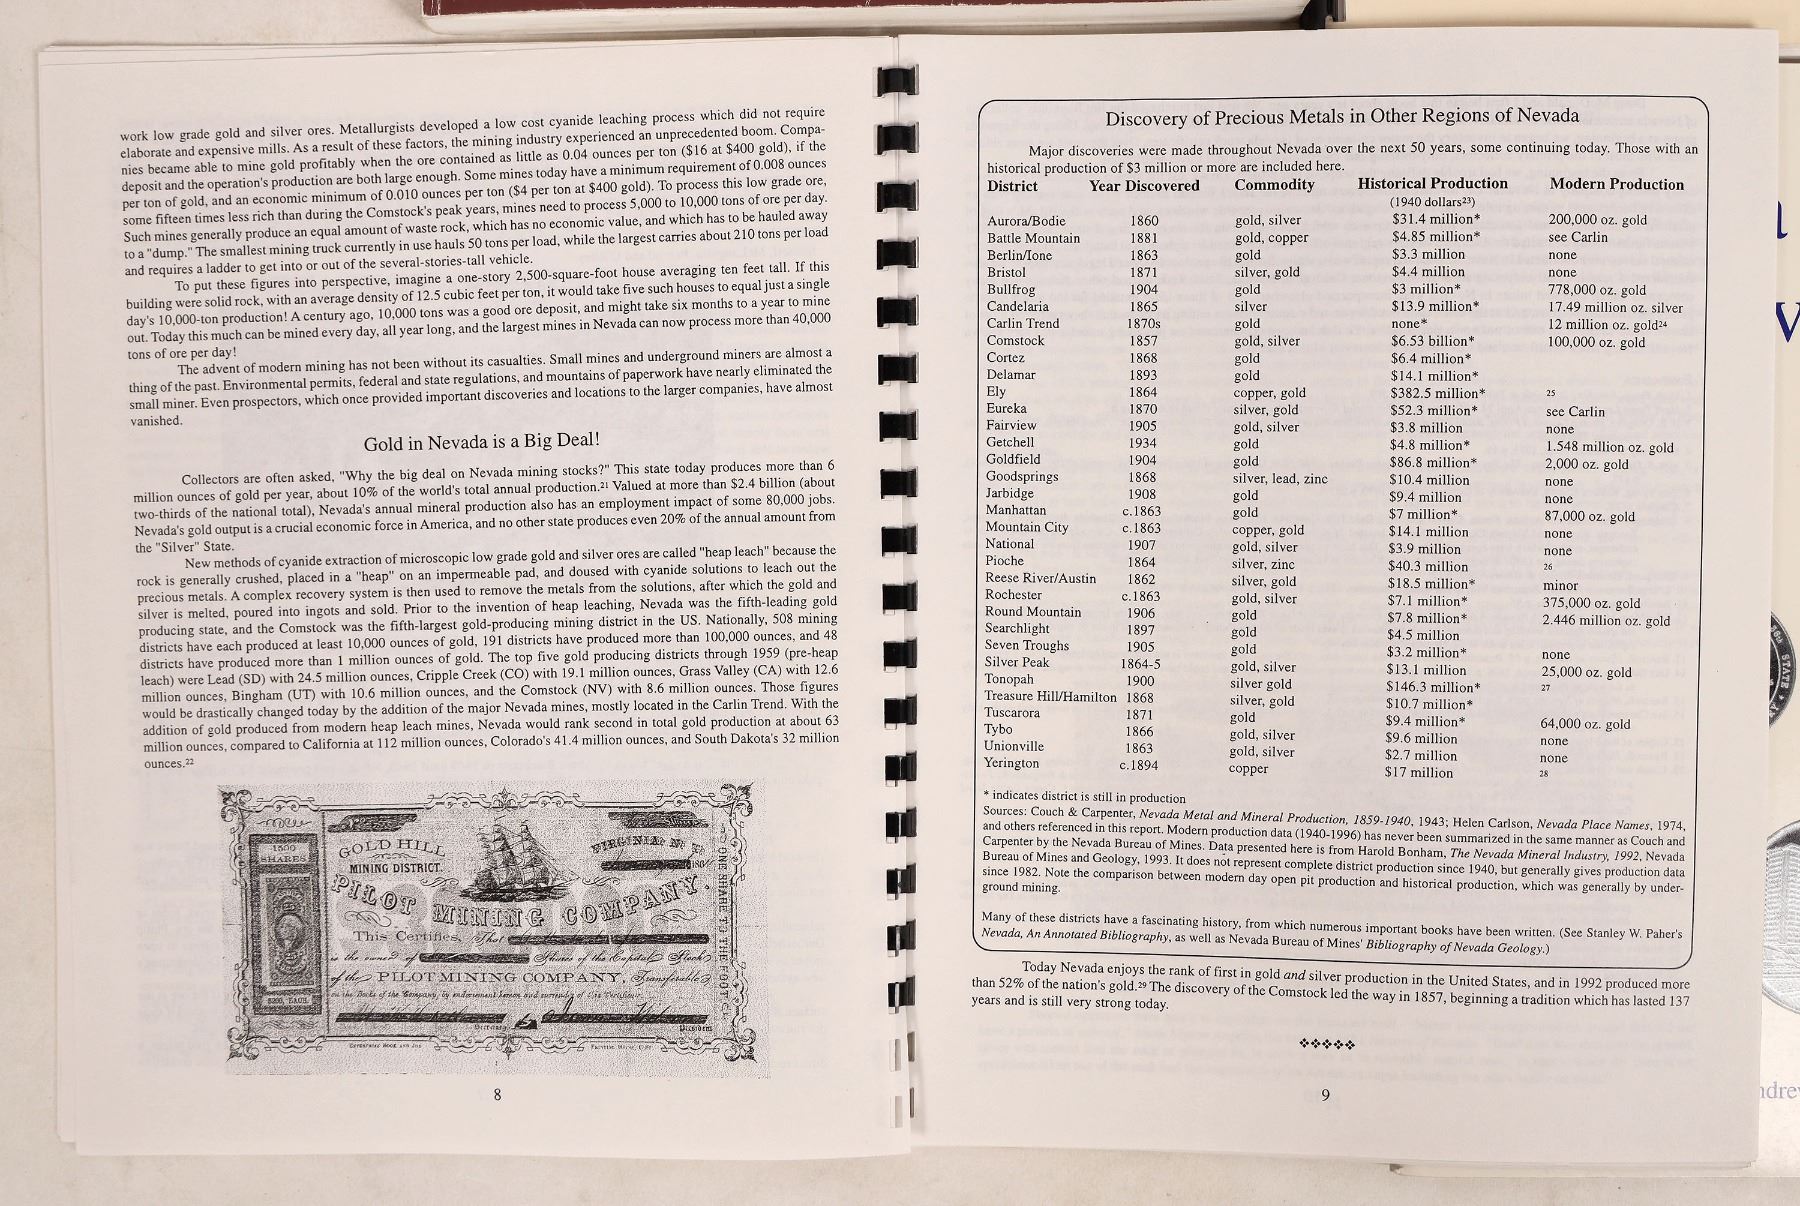 work low grade gold and silver ores. Metallurgists developed a low cost cyanide leaching process which did not require
elaborate and expensive mills. As a result of these factors, the mining industry experienced an unprecedented boom. Compa-
nies became able to mine gold profitably when the ore contained as little as 0.04 ounces per ton ($16 at $400 gold), if the
deposit and the operation's production are both large enough. Some mines today have a minimum requirement of 0.008 ounces
per ton of gold, and an economic minimum of 0.010 ounces per ton ($4 per ton at $400 gold). To process this low grade ore,
some fifteen times less rich than during the Comstock's peak years, mines need to process 5,000 to 10,000 tons of ore per day.
Such mines generally produce an equal amount of waste rock, which has no economic value, and which has to be hauled away
to a "dump." The smallest mining truck currently in use hauls 50 tons per load, while the largest carries about 210 tons per load
and requires a ladder to get into or out of the several-stories-tall vehicle.
To put these figures into perspective, imagine a one-story 2,500-square-foot house averaging ten feet tall. If this
building were solid rock, with an average density of 12.5 cubic feet per ton, it would take five such houses to equal just a single
day's 10,000-ton production! A century ago, 10,000 tons was a good ore deposit, and might take six months to a year to mine
out. Today this much can be mined every day, all year long, and the largest mines in Nevada can now process more than 40,000
tons of ore per day!
The advent of modern mining has not been without its casualties. Small mines and underground miners are almost a
thing of the past. Environmental permits, federal and state regulations, and mountains of paperwork have nearly eliminated the
small miner. Even prospectors, which once provided important discoveries and locations to the larger companies, have almost
vanished.
Gold in Nevada is a Big Deal!
Collectors are often asked, "Why the big deal on Nevada mining stocks?" This state today produces more than 6
million ounces of gold per year, about 10% of the world's total annual production.21 Valued at more than $2.4 billion (about
two-thirds of the national total), Nevada's annual mineral production also has an employment impact of some 80,000 jobs.
Nevada's gold output is a crucial economic force in America, and no other state produces even 20% of the annual amount from
the "Silver" State.
New methods of cyanide extraction of microscopic low grade gold and silver ores are called "heap leach" because the
rock is generally crushed, placed in a "heap" on an impermeable pad, and doused with cyanide solutions to leach out the
precious metals. A complex recovery system is then used to remove the metals from the solutions, after which the gold and
silver is melted, poured into ingots and sold. Prior to the invention of heap leaching, Nevada was the fifth-leading gold
producing state, and the Comstock was the fifth-largest gold-producing mining district in the US. Nationally, 508 mining
districts have each produced at least 10,000 ounces of gold, 191 districts have produced more than 100,000 ounces, and 48
districts have produced more than 1 million ounces of gold. The top five gold producing districts through 1959 (pre-heap
leach) were Lead (SD) with 24.5 million ounces, Cripple Creek (CO) with 19.1 million ounces, Grass Valley (CA) with 12.6
million ounces, Bingham (UT) with 10.6 million ounces, and the Comstock (NV) with 8.6 million ounces. Those figures
would be drastically changed today by the addition of the major Nevada mines, mostly located in the Carlin Trend. With the
addition of gold produced from modern heap leach mines, Nevada would rank second in total gold production at about 63
million ounces, compared to California at 112 million ounces, Colorado's 41.4 million ounces, and South Dakota's 32 million
ounces.22
1500
SHARES
$200, EACH.
GOLD HILL
MINING DISTRICT.
VIRGINIA N. T.
PILOT MINING COMPANY.
This Certifies, That
is the owner of Shares of the Capital Stock
of the PILOT MINING COMPANY, Transferable
on the Books of the Company by endorsement hereon and surrender of this Certificate.
President
ONE SHARE TO THE FOOT
8
Discovery of Precious Metals in Other Regions of Nevada
Major discoveries were made throughout Nevada over the next 50 years, some continuing today. Those with an
historical production of $3 million or more are included here.
District Year Discovered Commodity Historical Production Modern Production
(1940 dollars23)
Aurora/Bodie 1860 gold, silver $31.4 million* 200,000 oz. gold
Battle Mountain 1881 gold, copper $4.85 million* see Carlin
Berlin/Ione 1863 gold $3.3 million none
Bristol 1871 silver, gold $4.4 million none
Bullfrog 1904 gold $3 million* 778,000 oz. gold
Candelaria 1865 silver $13.9 million* 17.49 million oz. silver
Carlin Trend 1870s gold none* 12 million oz. gold24
Comstock 1857 gold, silver $6.53 billion* 100,000 oz. gold
Cortez 1868 gold $6.4 million*
Delamar 1893 gold $14.1 million*
Ely 1864 copper, gold $382.5 million* 25
Eureka 1870 silver, gold $52.3 million* see Carlin
Fairview 1905 gold, silver $3.8 million none
Getchell 1934 gold $4.8 million* 1.548 million oz. gold
Goldfield 1904 gold $86.8 million* 2,000 oz. gold
Goodsprings 1868 silver, lead, zinc $10.4 million none
Jarbidge 1908 gold $9.4 million none
Manhattan c.1863 gold $7 million* 87,000 oz. gold
Mountain City c.1863 copper, gold $14.1 million none
National 1907 gold, silver $3.9 million none
Pioche 1864 silver, zinc $40.3 million 26
Reese River/Austin 1862 silver, gold $18.5 million* minor
Rochester c.1863 gold, silver $7.1 million* 375,000 oz. gold
Round Mountain 1906 gold $7.8 million* 2.446 million oz. gold
Searchlight 1897 gold $4.5 million
Seven Troughs 1905 gold $3.2 million* none
Silver Peak 1864-5 gold, silver $13.1 million 25,000 oz. gold
Tonopah 1900 silver gold $146.3 million* 27
Treasure Hill/Hamilton 1868 silver, gold $10.7 million*
Tuscarora 1871 gold $9.4 million* 64,000 oz. gold
Tybo 1866 gold, silver $9.6 million none
Unionville 1863 gold, silver $2.7 million none
Yerington c.1894 copper $17 million 28
* indicates district is still in production
Sources: Couch & Carpenter, Nevada Metal and Mineral Production, 1859-1940, 1943; Helen Carlson, Nevada Place Names, 1974,
and others referenced in this report. Modern production data (1940-1996) has never been summarized in the same manner as Couch and
Carpenter by the Nevada Bureau of Mines. Data presented here is from Harold Bonham, The Nevada Mineral Industry, 1992, Nevada
Bureau of Mines and Geology, 1993. It does not represent complete district production since 1940, but generally gives production data
since 1982. Note the comparison between modern day open pit production and historical production, which was generally by under-
ground mining.
Many of these districts have a fascinating history, from which numerous important books have been written. (See Stanley W. Paher's
Nevada, An Annotated Bibliography, as well as Nevada Bureau of Mines' Bibliography of Nevada Geology.)
Today Nevada enjoys the rank of first in gold and silver production in the United States, and in 1992 produced more
than 52% of the nation's gold.29 The discovery of the Comstock led the way in 1857, beginning a tradition which has lasted 137
years and is still very strong today.
9
STATE